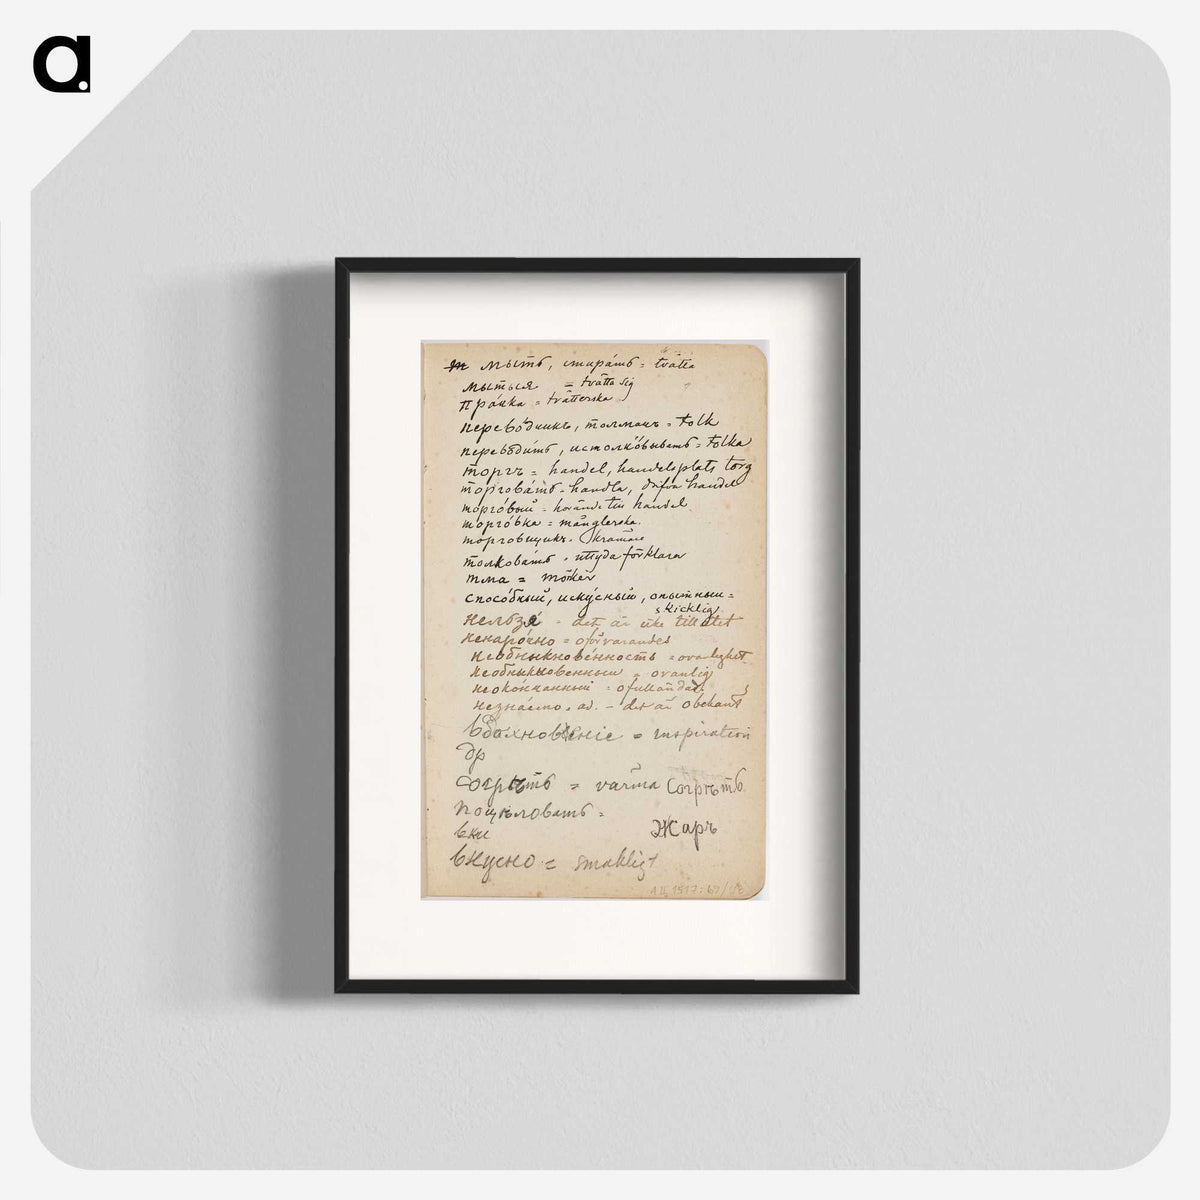 a.
мыть, стирать = tvätta
мыться = tvätta sig
прачка = tvätterska
переводчикъ, толмачъ = tolk
переводить, истолковывать = tolka
торгъ = handel, handelsplats torg
торговать = handla, drifva handel
торговый = hörande till handel
торговка = månglerska.
торговщикъ. krämare
толковать = uttyda förklara
тма = mörker
способный, искусный, опытный =
skicklig
нельзя = det är icke tillåtet
ненарочно = oförvarandes
необыкновенность = ovanlighet
необыкновенный = ovanlig
неоконченный = ofulländad
незнаемо. ad. - det är obekant
вдохновеніе = inspiration
др
согрѣть = värma согрѣть
поцѣловать =
вки Жаръ
вкусно = smakligt